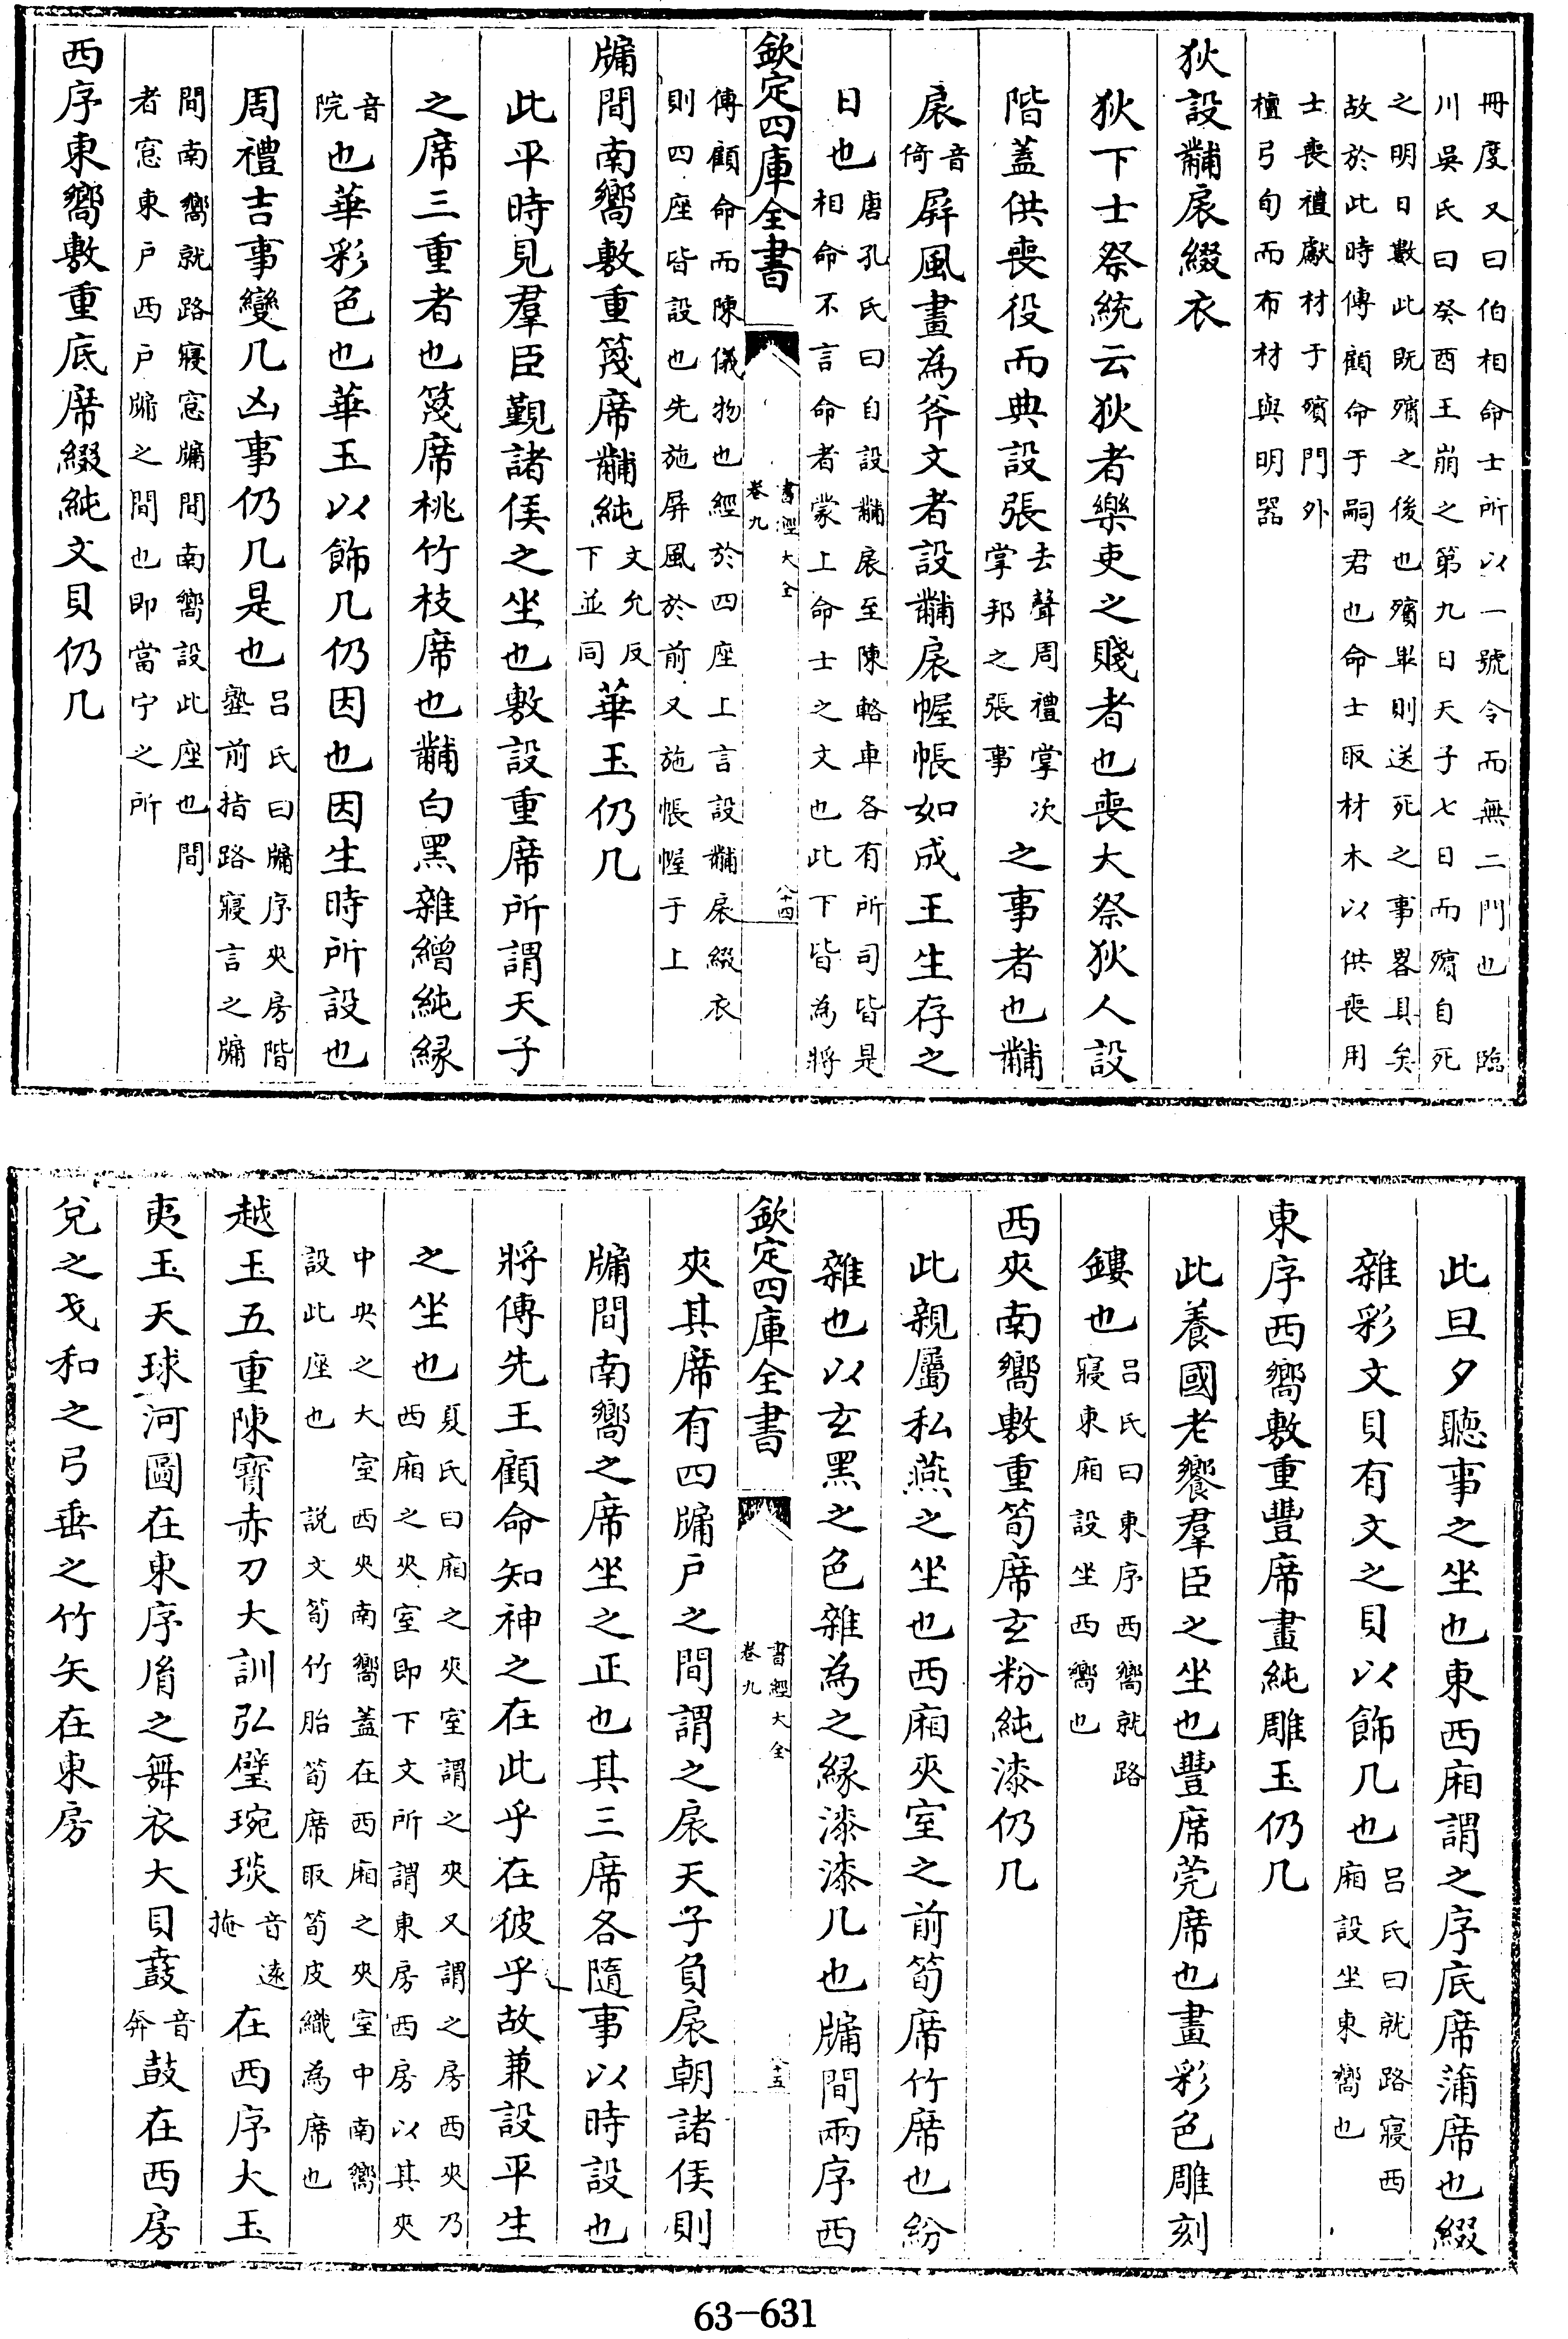 冊度又曰伯相命士所以一號令而無二門也 臨
川吳氏曰癸酉王崩之第九日天子七日而殯自死
之明日數此既殯之後也殯畢則送死之事畧具矣
故於此時傳顧命于嗣君也命士取材木以供喪用
士喪禮獻材于殯門外
檀弓旬而布材與明器
狄設黼扆綴衣
狄下士祭統云狄者樂吏之賤者也喪大祭狄人設
階蓋供喪役而典設張去聲周禮掌次掌邦之張事之事者也黼
扆音倚屏風畫為斧文者設黼扆幄帳如成王生存之
日也唐孔氏曰自設黼扆至陳輅車各有所司皆是相命不言命者蒙上命士之文也此下皆為將
欽定四庫全書 書經大全 卷九 八十四
傳顧命而陳儀物也經於四座上言設黼扆綴衣
則四座皆設也先施屏風於前又施帳幄于上
牖間南嚮敷重篾席黼純文允反下並同華玉仍几
此平時見羣臣覲諸侯之坐也敷設重席所謂天子
之席三重者也篾席桃竹枝席也黼白黑雜繒純緣
院音也華彩色也華玉以飾几仍因也因生時所設也
周禮吉事變几凶事仍几是也呂氏曰牖序夾房階塾前指路寢言之牖
間南嚮就路寢窓牖間南嚮設此座也 間
者窓東戶西戶牖之間也即當宁之所
西序東嚮敷重底席綴純文貝仍几
此旦夕聽事之坐也東西廂謂之序底席蒲席也綴
雜彩文貝有文之貝以飾几也呂氏曰就路寢西廂設坐東嚮也
東序西嚮敷重豐席畫純雕玉仍几
此養國老饗羣臣之坐也豐席莞席也畫彩色雕刻
鏤也呂氏曰東序西嚮就路寢東廂設坐西嚮也
西夾南嚮敷重筍席玄粉純漆仍几
此親屬私燕之坐也西廂夾室之前筍席竹席也紛
雜也以玄黑之色雜為之緣漆漆几也牖間兩序西
欽定四庫全書 書經大全 卷九 八十五
夾其席有四牖戶之間謂之扆天子負扆朝諸侯則
牖間南嚮之席坐之正也其三席各隨事以時設也
將傳先王顧命知神之在此乎在彼乎故兼設平生
之坐也夏氏曰廂之夾室謂之夾又謂之房西夾乃西廂之夾室即下文所謂東房西房以其夾
中央之大室西夾南嚮蓋在西廂之夾室中南嚮
設此座也 說文筍竹胎筍席取筍皮織為席也
越玉五重陳寳赤刀大訓弘璧琬琰音遠掩在西序大玉
夷玉天球河圖在東序胤之舞衣大貝鼖音奔鼓在西房
兌之戈和之弓垂之竹矢在東房
63-631